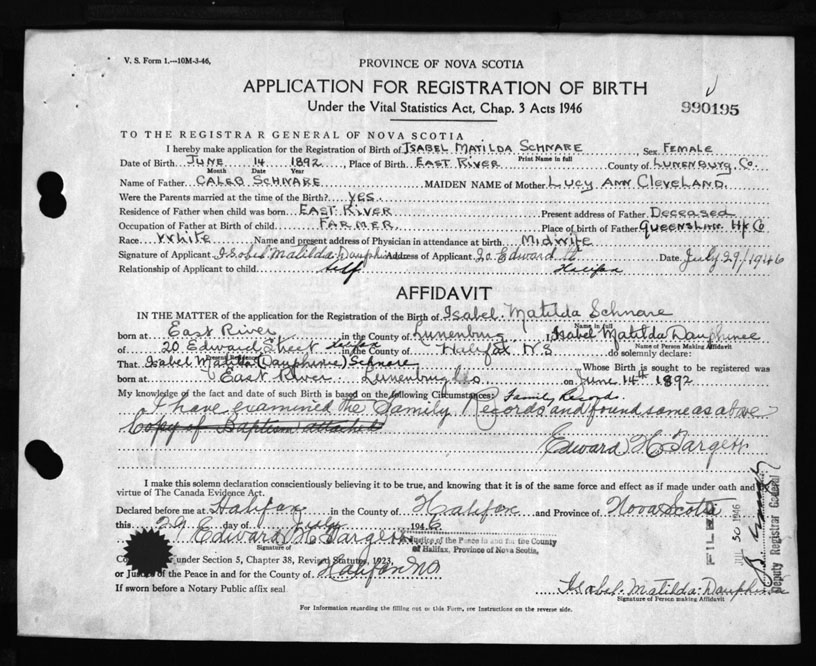 V. S. Form 1.—10M-3-46,
PROVINCE OF NOVA SCOTIA
APPLICATION FOR REGISTRATION OF BIRTH
Under the Vital Statistics Act, Chap. 3 Acts 1946
990195
TO THE REGISTRAR GENERAL OF NOVA SCOTIA
I hereby make application for the Registration of Birth of ISABEL MATILDA SCHNARE Sex FEMALE
Print Name in full
Date of Birth JUNE 14 1892, Place of Birth EAST RIVER County of LUNENBURG, Co.
Month Date Year
Name of Father CALEB SCHNARE MAIDEN NAME of Mother LUCY ANN CLEVELAND.
Were the Parents married at the time of the Birth? YES.
Residence of Father when child was born EAST RIVER Present address of Father Deceased
Occupation of Father at Birth of child FARMER. Place of birth of Father Queensland Hx Co
Race White Name and present address of Physician in attendance at birth Midwife
Signature of Applicant Isabel Matilda Dauphinee Address of Applicant 20 Edward St Date July 29/1946
Relationship of Applicant to child self Halifax
AFFIDAVIT
IN THE MATTER of the application for the Registration of the Birth of Isabel Matilda Schnare
Name in full
born at East River in the County of Lunenburg I, Isabel Matilda Dauphinee
Name of Person Making Affidavit
of 20 Edward Street Halifax in the County of Halifax N S do solemnly declare:
That Isabel Matilda (Dauphinee) Schnare Whose Birth is sought to be registered was
born at East River Lunenburg Co. on June 14th 1892
My knowledge of the fact and date of such Birth is based on the following Circumstances: Family Records.
I have examined the Family Records and found same as above
Copy of Baptism attached
Edward H. Targett
I make this solemn declaration conscientiously believing it to be true, and knowing that it is of the same force and effect as if made under oath and by
virtue of The Canada Evidence Act.
Declared before me at Halifax in the County of Halifax and Province of Nova Scotia
this 29 day of July 1946
Edward H. Targett
Justice of the Peace in and for the County
of Halifax, Province of Nova Scotia,
Signature of
under Section 3, Chapter 38, Revised Statutes, 1923,
or Justice of the Peace in and for the County of Halifax
If sworn before a Notary Public affix seal
Isabel Matilda Dauphinee
Signature of Person making Affidavit
For Information regarding the filling out of this Form, see Instructions on the reverse side.
FILED
JUL 30 1946
Deputy Registrar General